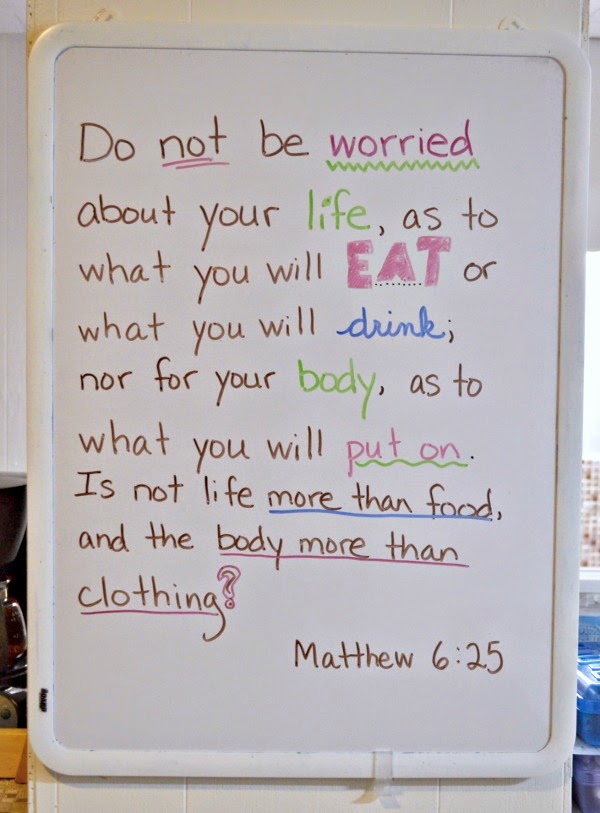 Do not be worried
about your life, as to
what you will EAT or
what you will drink;
nor for your body, as to
what you will put on.
Is not life more than food,
and the body more than
clothing?
Matthew 6:25